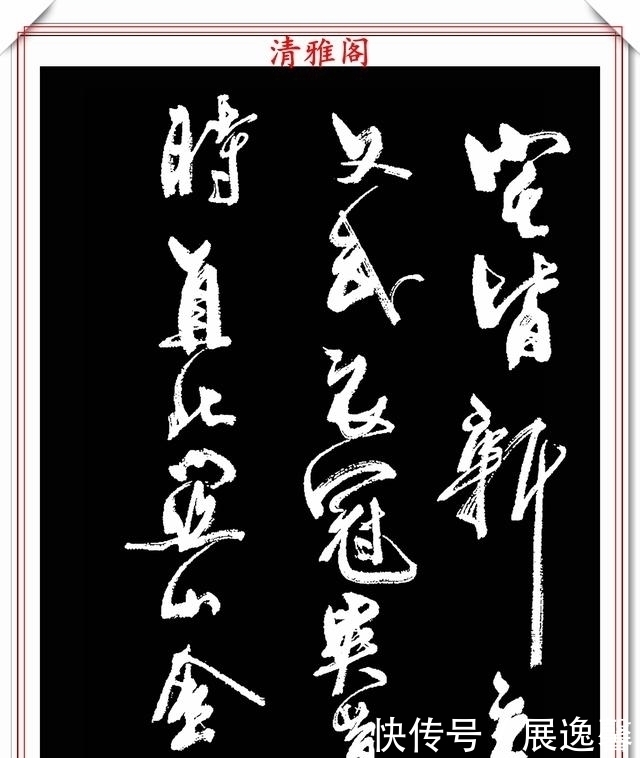 清雅阁
宅皆新主
文武衣冠异昔
時直北關山金
快传号 / 展逸馨